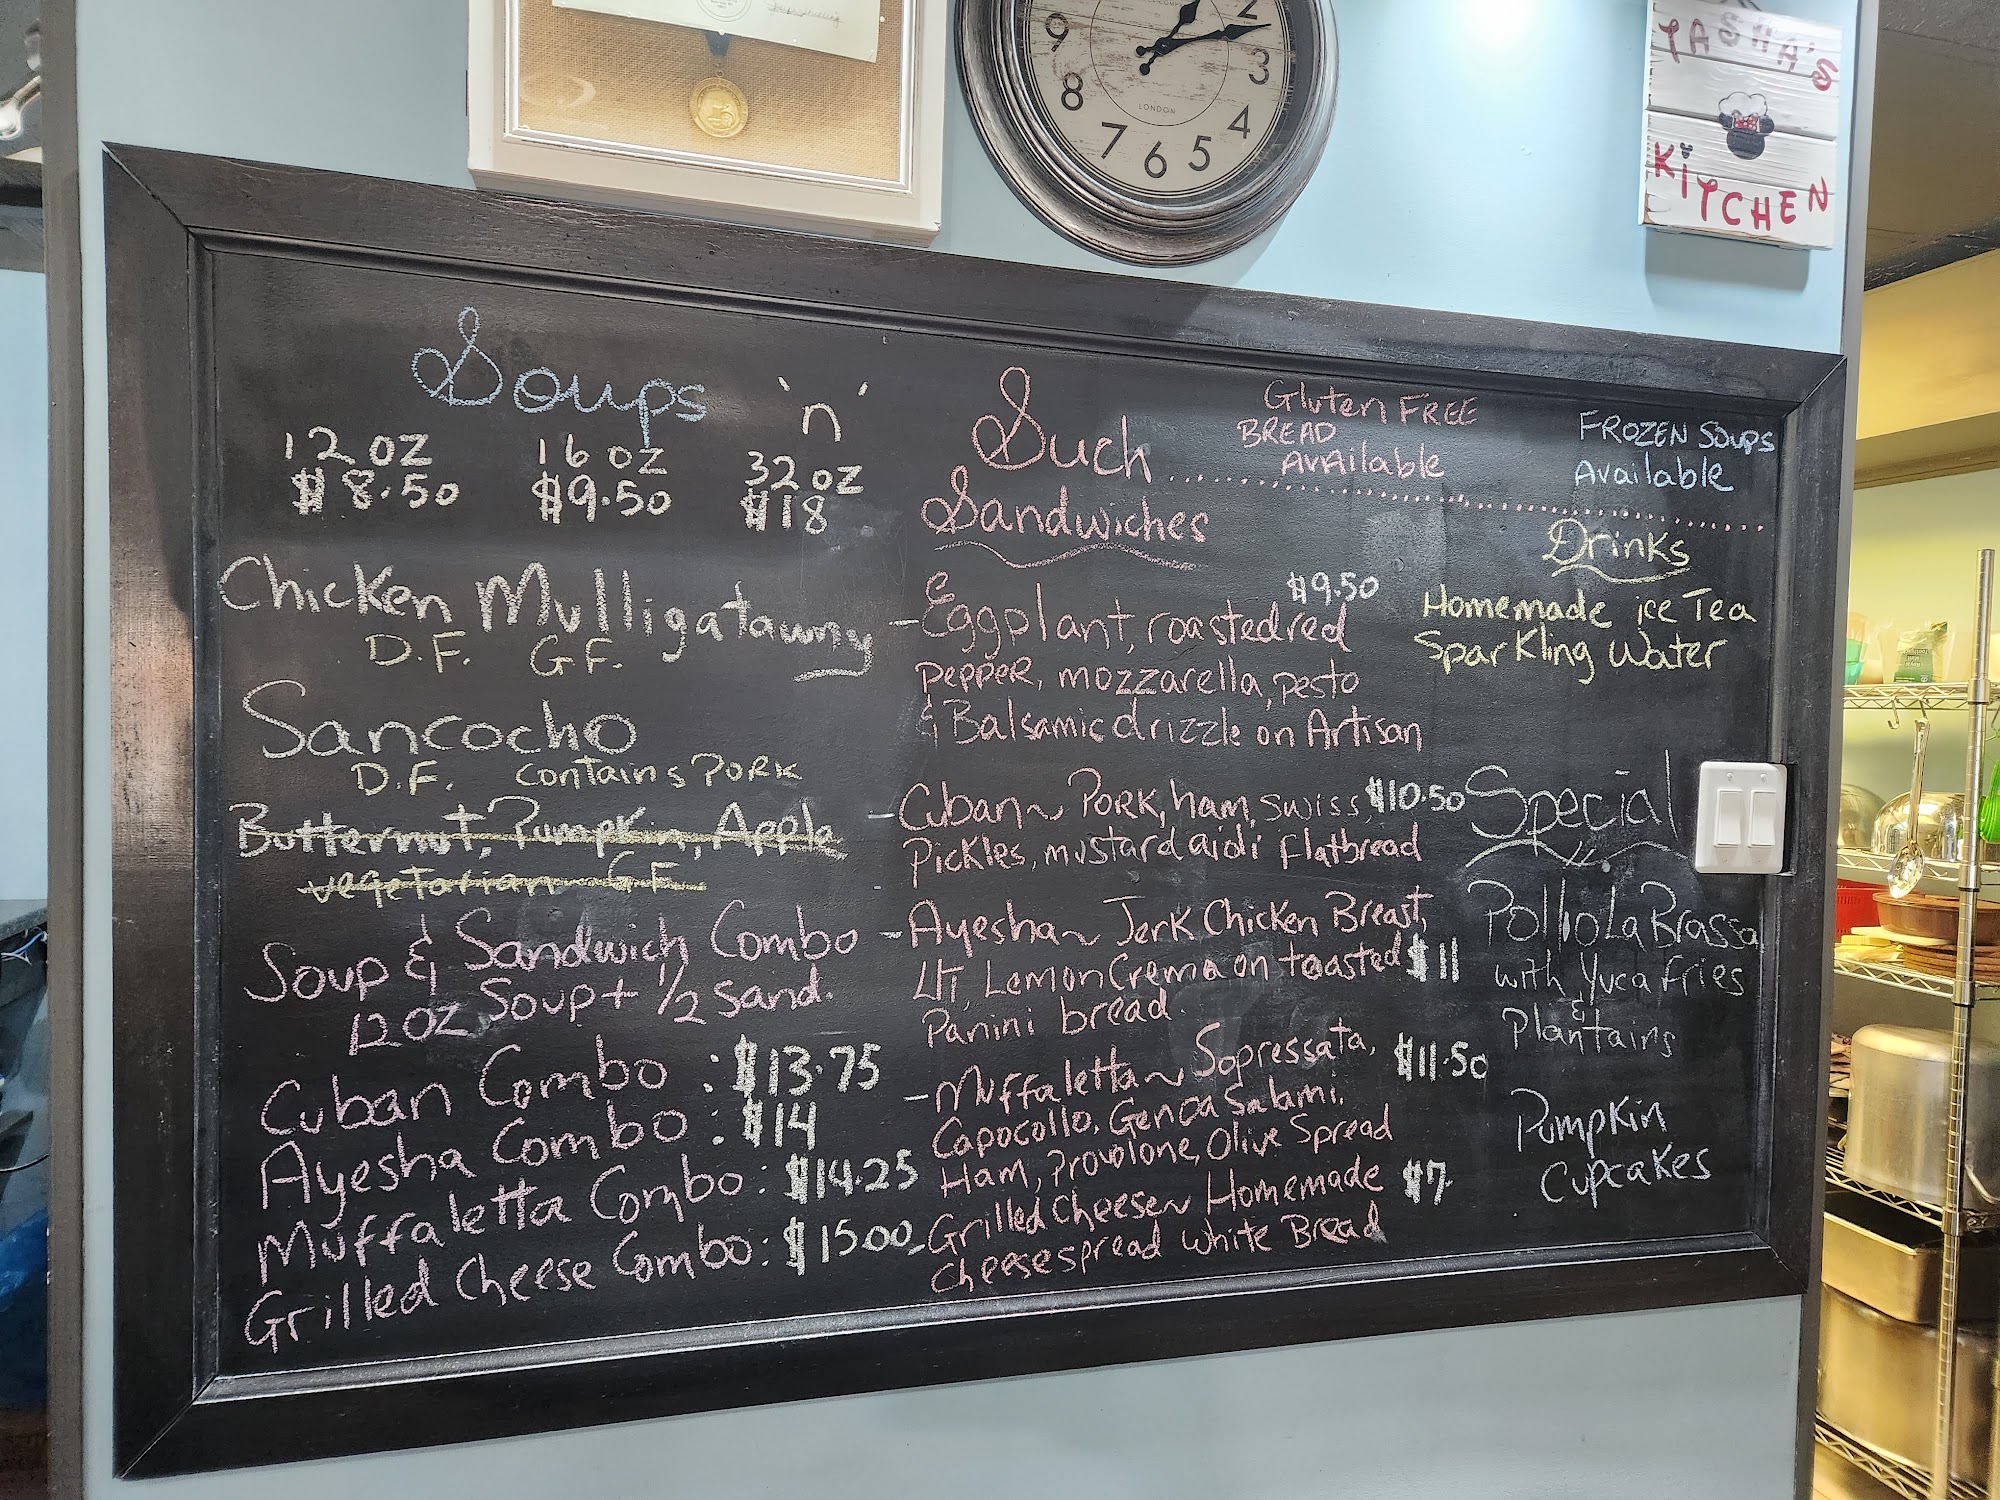 LONDON
9
8
7
6
5
4
3
2
TASHA'S
KITCHEN
Soups 'n' Such
Gluten FREE
BREAD
Available
FROZEN Soups
Available
12 oz
$8.50
16 oz
$9.50
32 oz
$18
Chicken Mulligatawny
D.F. G.F.
Sancocho
D.F. contains PORK
Butternut, Pumpkin, Apple
vegetarian GF
Soup & Sandwich Combo
12 OZ Soup + 1/2 sand.
Cuban Combo : $13.75
Ayesha Combo : $14
Muffaletta Combo : $14.25
Grilled Cheese Combo : $15.00
Sandwiches
$9.50
- Eggplant, roasted red
pepper, mozzarella, pesto
& Balsamic drizzle on Artisan
- Cuban ~ PORK, ham, swiss, $10.50
Pickles, mustard aioli flatbread
- Ayesha ~ Jerk Chicken Breast,
L/T, Lemon Crema on toasted $11
Panini bread.
- Muffaletta ~ Sopressata, $11.50
Capocollo, Genoa Salami,
Ham, Provolone, Olive Spread
- Grilled Cheese ~ Homemade $7.
cheesespread white Bread
Drinks
Homemade ice Tea
Sparkling Water
Special
Pollo La Brassa
with Yuca fries
&
Plantains
Pumpkin
Cupcakes